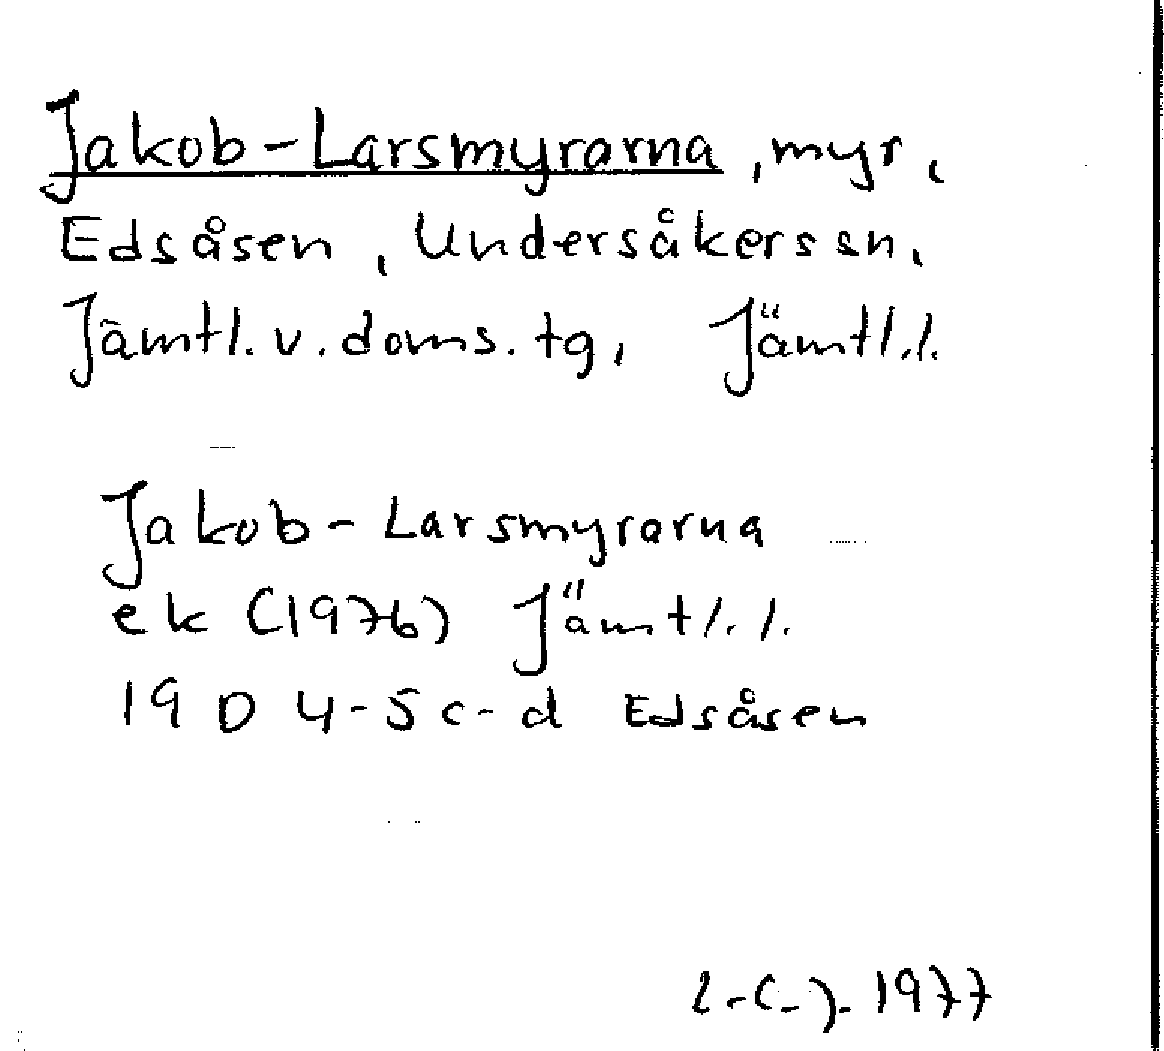 Jakob-Larsmyrarna, myr,
Edsåsen, Undersåkers sn,
Jämtl. v. doms. tg, Jämtl. l.
Jakob-Larsmyrarna
ek (1976) Jämtl. l.
19 D 4-5 c-d Edsåsen
1977